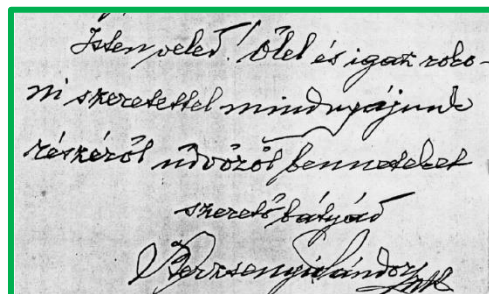 Isten veled! Ölel és igaz roko-
ni szeretettel mindnyájunk
részéről üdvözöl benneteket
szerető bátyád
Berzsenyi Sándor